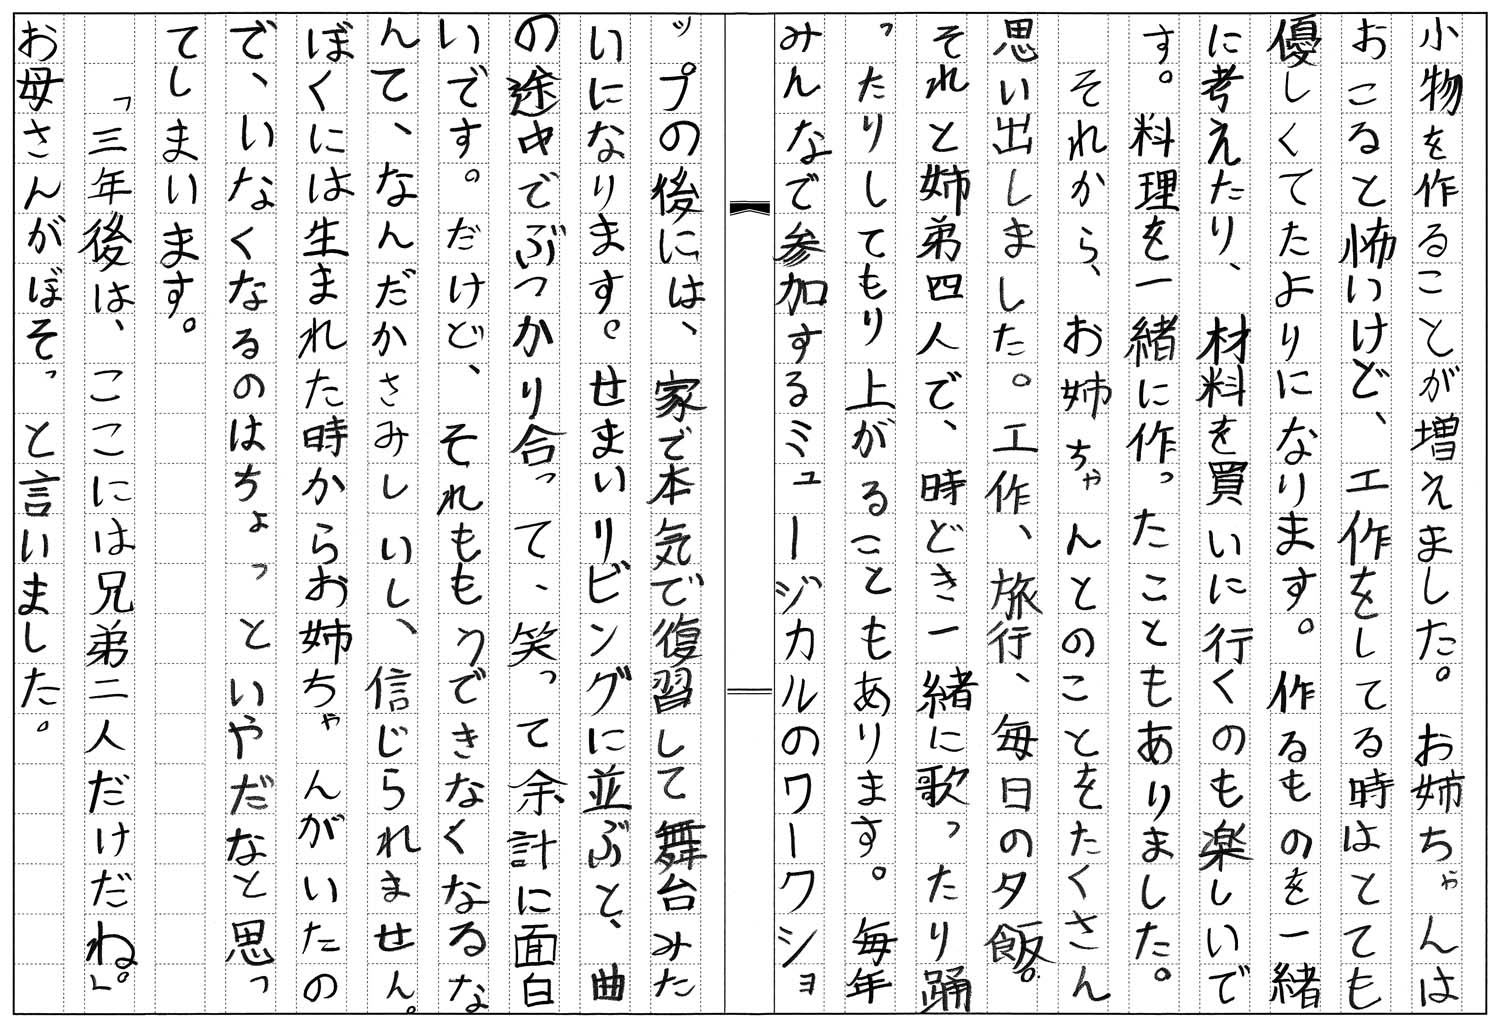 小物を作ることが増えました。お姉ちゃんは
おこると怖いけど、工作をしてる時はとても
優しくてたよりになります。作るものを一緒
に考えたり、材料を買いに行くのも楽しいで
す。料理を一緒に作ったこともありました。
それから、お姉ちゃんとのことをたくさん
思い出しました。工作、旅行、毎日の夕飯。
それと姉弟四人で、時どき一緒に歌ったり踊
ったりしてもり上がることもあります。毎年
みんなで参加するミュージカルのワークショ
ップの後には、家で本気で復習して舞台みた
いになります。せまいリビングに並ぶと、曲
の途中でぶつかり合って、笑って余計に面白
いです。だけど、それももうできなくなるな
んて、なんだかさみしいし、信じられません。
ぼくには生まれた時からお姉ちゃんがいたの
で、いなくなるのはちょっといやだなと思っ
てしまいます。
「三年後は、ここには兄弟二人だけだね。」
お母さんがぼそっと言いました。